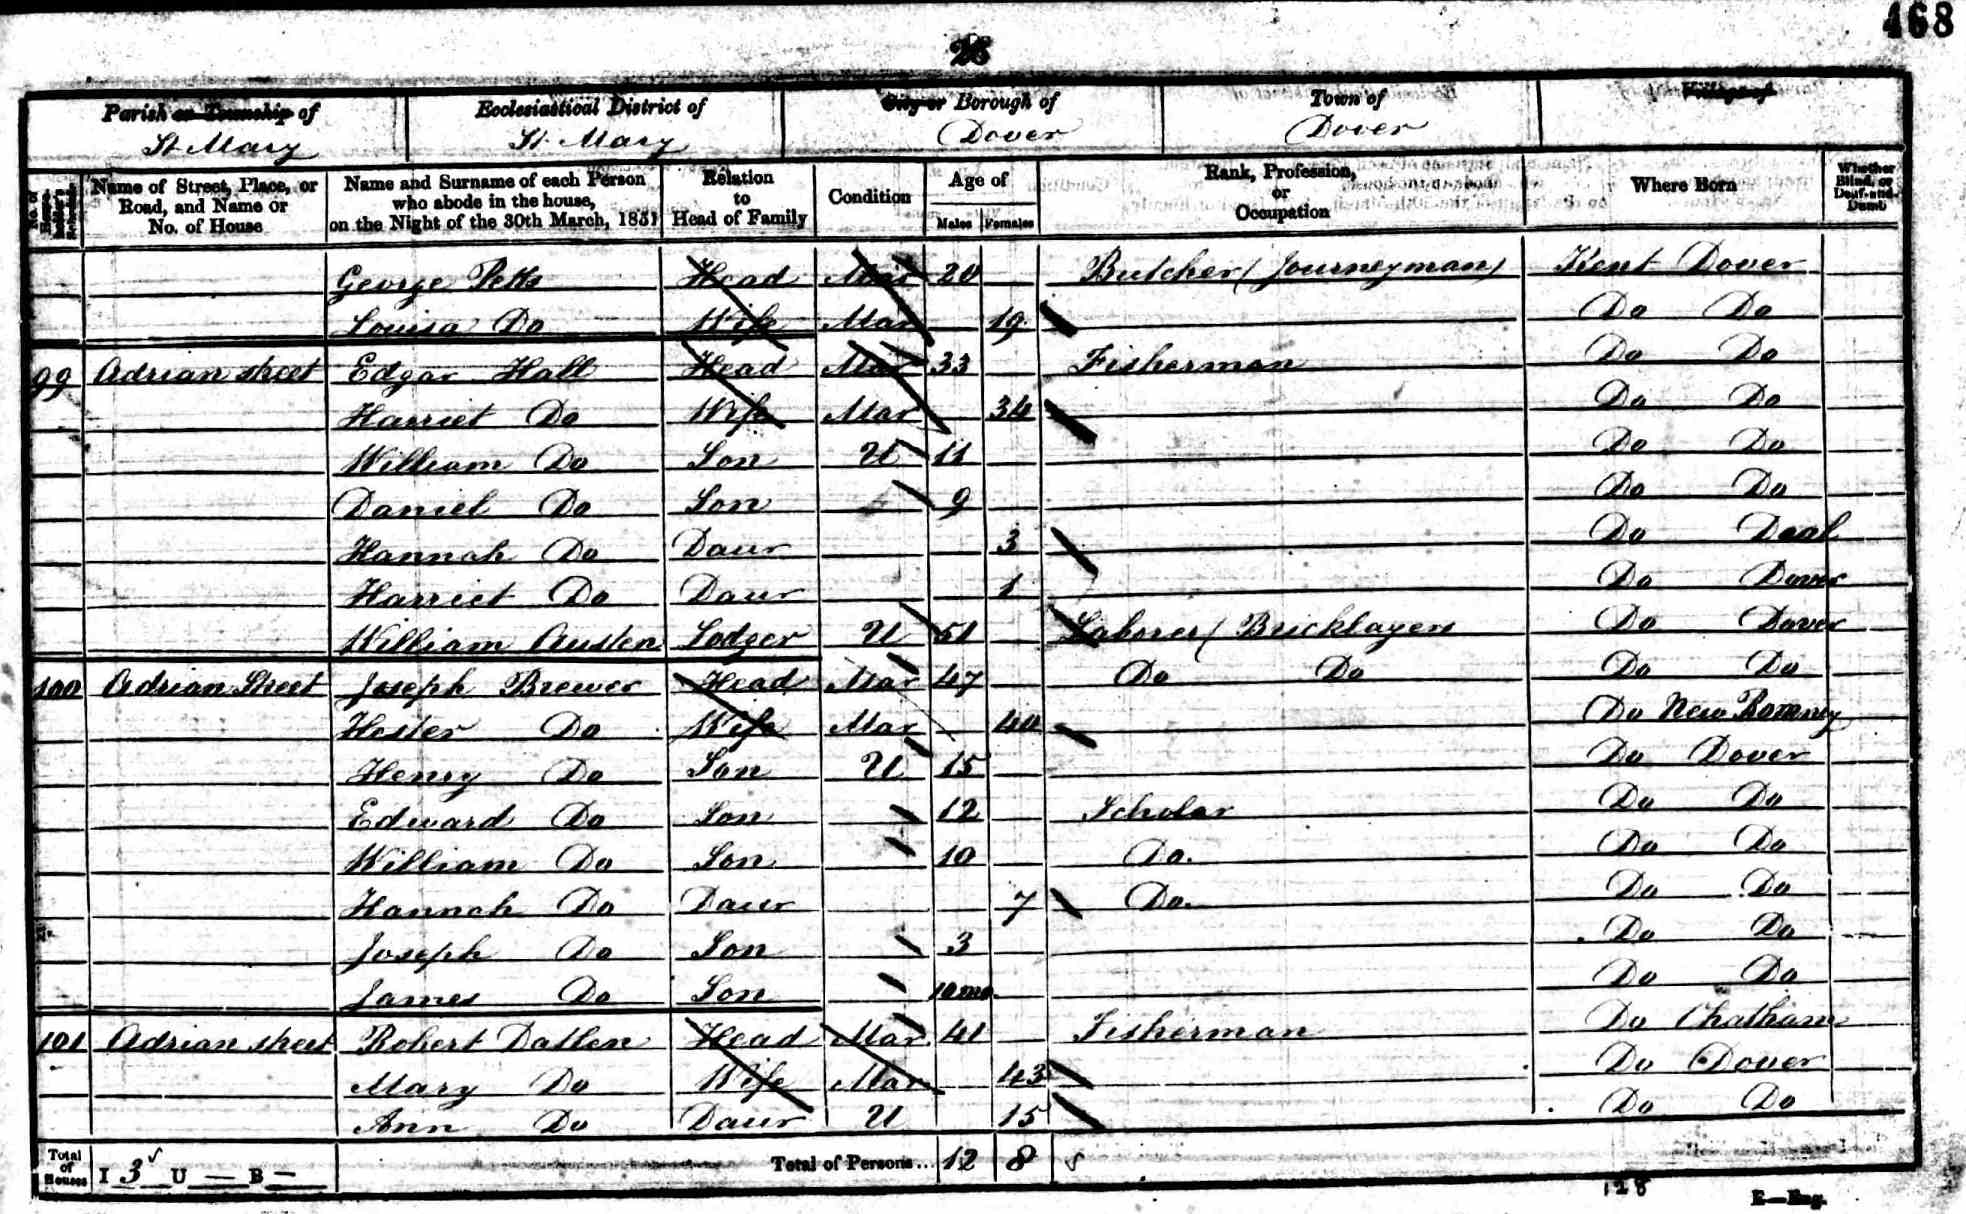 468
26
Parish or Township of
St Mary
Ecclesiastical District of
St. Mary
City or Borough of
Dover
Town of
Dover
Village of
Name of Street, Place, or Road, and Name or No. of House
Name and Surname of each Person who abode in the house, on the Night of the 30th March, 1851
Relation to Head of Family
Condition
Age of
Males Females
Rank, Profession, or Occupation
Where Born
Whether Blind, or Deaf-and-Dumb
George Petts Head Mar 20 Butcher (Journeyman) Kent Dover
Louisa Do Wife Mar 19 Do Do
99 Adrian street Edgar Hall Head Mar 33 Fisherman Do Do
Harriet Do Wife Mar 34 Do Do
William Do Son U 11 Do Do
Daniel Do Son 9 Do Do
Hannah Do Daur 3 Do Deal
Harriet Do Daur 1 Do Dover
William Austen Lodger U 51 Laborer (Bricklayers Do Dover
100 Adrian Street Joseph Brewer Head Mar 47 Do Do Do Do
Hester Do Wife Mar 40 Do New Romney
Henry Do Son U 15 Do Dover
Edward Do Son 12 Scholar Do Do
William Do Son 10 Do. Do Do
Hannah Do Daur 7 Do. Do Do
Joseph Do Son 3 Do Do
James Do Son 10 mo Do Do
101 Adrian street Robert Dallen Head Mar 41 Fisherman Do Chatham
Mary Do Wife Mar 43 Do Dover
Ann Do Daur U 15 Do Do
Total of Houses I 3 U — B — Total of Persons... 12 8
128
E—Eng.